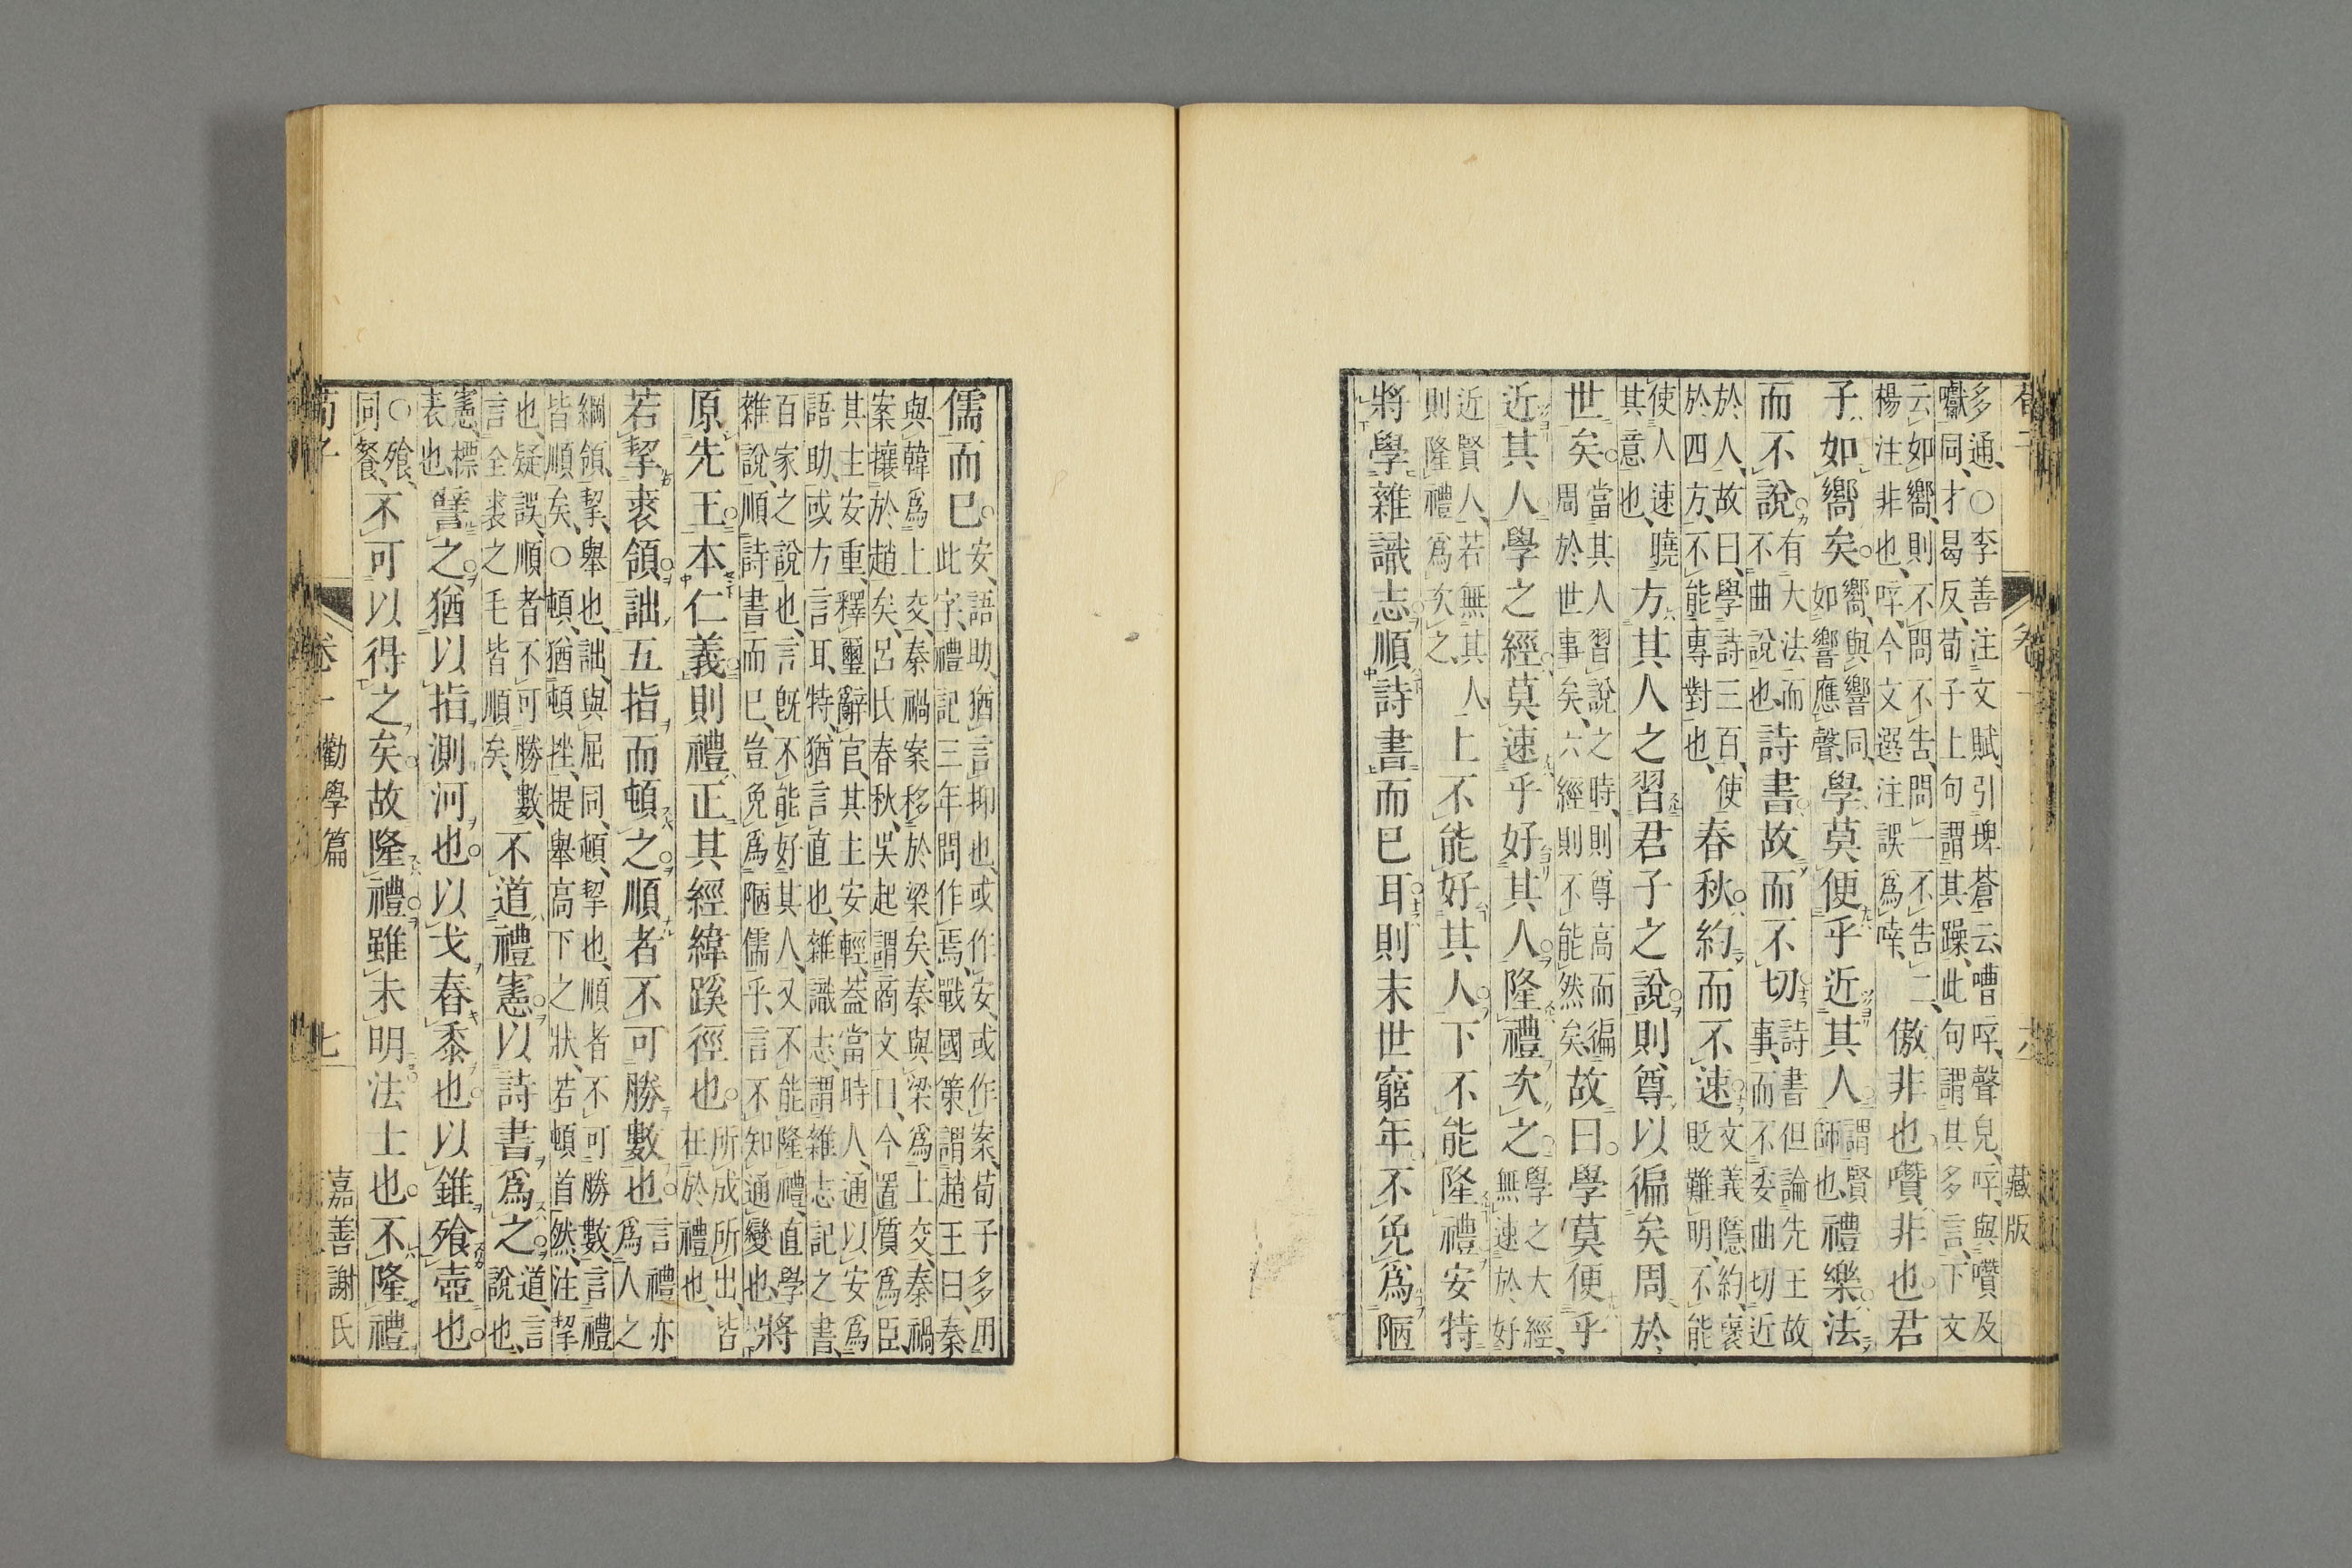 荀子　卷一　六　藏版
多通、○李善注文賦、引埤蒼云嘈啐、聲皃、啐、與囋及
囐同、才曷反、荀子上句謂其躁、此句謂其多言、下文
云如嚮、則不問不告、問一不告二、楊注非也、啐、今文選注誤爲啈、傲非也囋非也。君
子如嚮矣。嚮、與響同、如響應聲、學莫便乎近其人謂賢師也、禮樂法
而不說有大法而不曲說也、詩書故而不切詩書但論先王故事、而不委曲切近
於人、故曰、學詩三百、使於四方、不能專對也、春秋約而不速文義隱約、褒貶難明、不能
使人速曉其意也、方其人之習君子之說則尊以徧矣周於
世矣。當其人習說之時、則尊高而徧周於世事矣、六經則不能然矣、故曰。學莫便乎
近其人學之經莫速乎好其人隆禮次之學之大經、無速於好
近賢人、若無其人則隆禮爲次之、上不能好其人下不能隆禮安特
將學雜識志順詩書而已耳則末世窮年不免爲陋
儒而已。安、語助、猶言抑也、或作安、或作案、荀子多用此字、禮記三年問作焉、戰國策謂趙王曰、秦
與韓爲上交、秦禍案移於梁矣、秦與梁爲上交、秦禍
案攘於趙矣、呂氏春秋、吳起謂商文曰、今置質爲臣、
其主安重、釋璽辭官、其主安輕、蓋當時人、通以安爲
語助、或方言耳、特、猶言直也、雜識志、謂雜志記之書、
百家之說也、言旣不能好其人、又不能隆禮、直學雜說、順詩書而已、豈免爲陋儒乎、言不知通變也、將
原先王本仁義則禮正其經緯蹊徑也。所成所出、皆在於禮也、
若挈裘領詘五指而頓之順者不可勝數也。言禮亦爲人之
綱領、挈、舉也、詘、與屈同、頓、挈也、順者不可勝數、言禮
皆順矣、○頓、猶頓挫、提舉高下之狀、若頓首然、注挈
也、疑誤、順者不可勝數、言全裘之毛皆順矣、不道禮憲以詩書爲之道、言說也、
憲、標表也、譬之猶以指測河也。以戈舂黍也。以錐飡壺也。
○飡、同餐、不可以得之矣。故隆禮雖未明法士也。不隆禮
荀子　卷一　勸學篇　七　嘉善謝氏